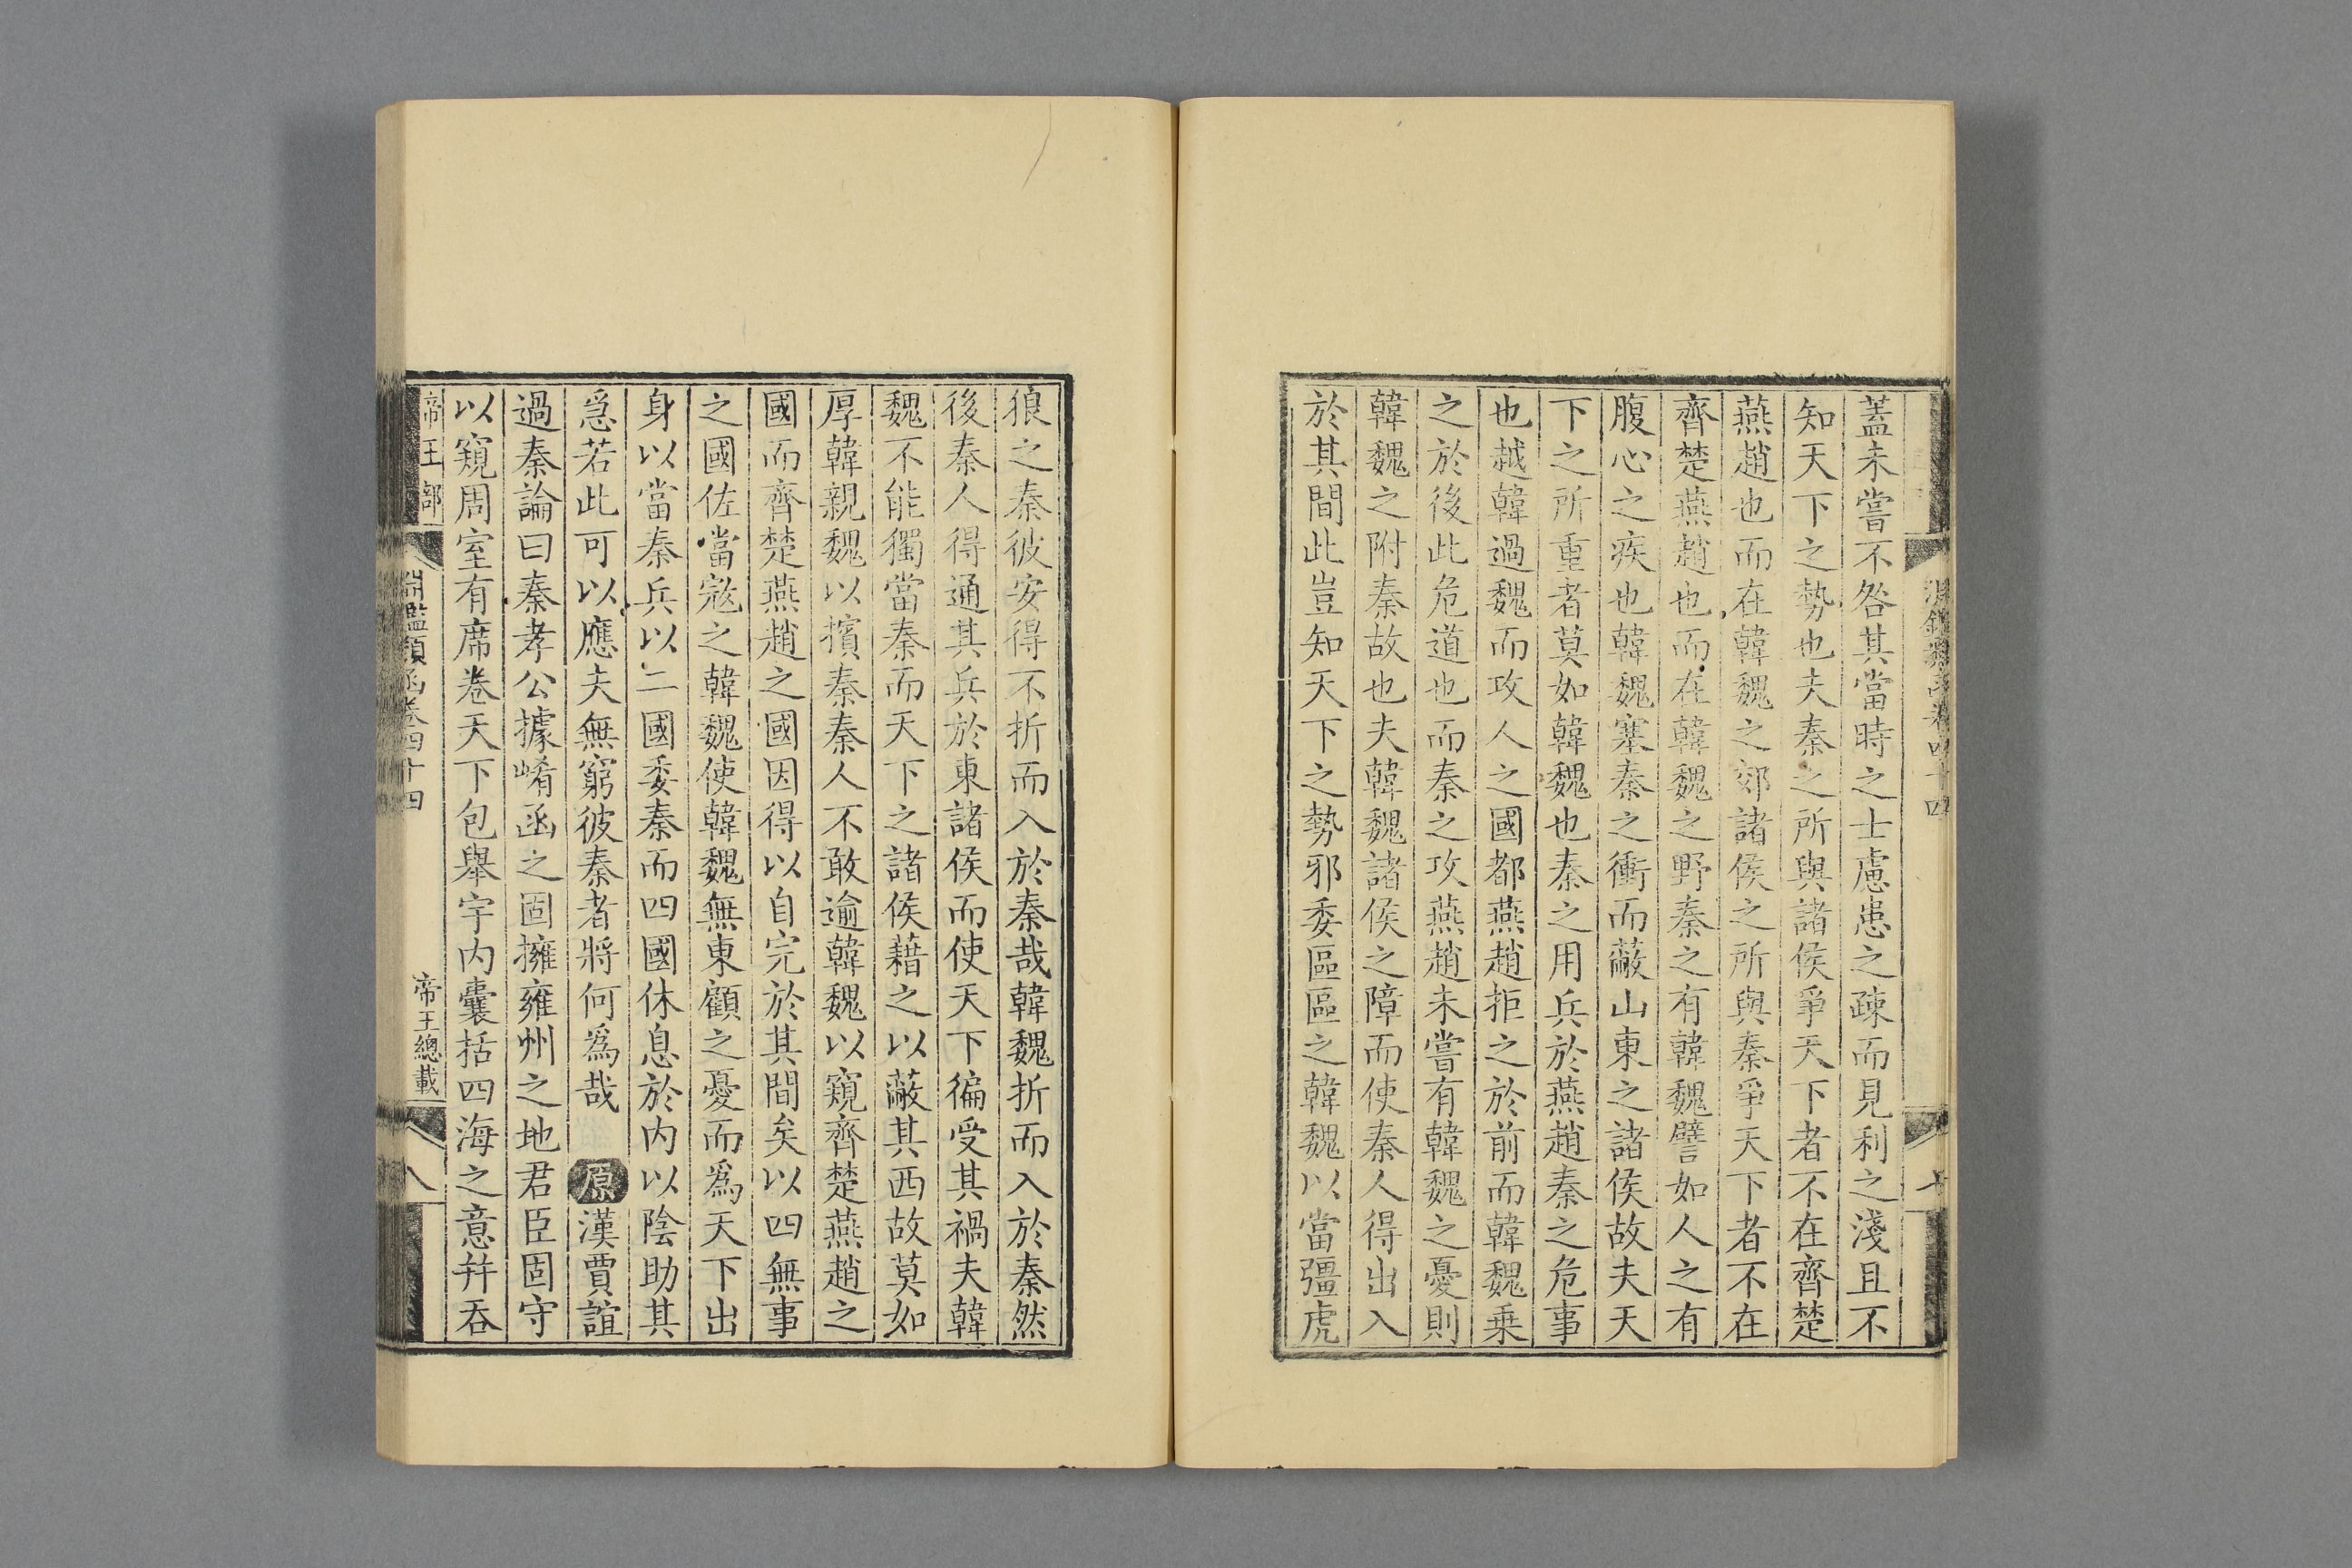 蓋未嘗不咎其當時之士慮患之疎而見利之淺且不
知天下之勢也夫秦之所與諸侯爭天下者不在齊楚
燕趙也而在韓魏之郊諸侯之所與秦爭天下者不在
齊楚燕趙也而在韓魏之野秦之有韓魏譬如人之有
腹心之疾也韓魏塞秦之衝而蔽山東之諸侯故夫天
下之所重者莫如韓魏也秦之用兵於燕趙秦之危事
也越韓過魏而攻人之國都燕趙拒之於前而韓魏乗
之於後此危道也而秦之攻燕趙未嘗有韓魏之憂則
韓魏之附秦故也夫韓魏諸侯之障而使秦人得出入
於其間此豈知天下之勢邪委區區之韓魏以當彊虎
狼之秦彼安得不折而入於秦哉韓魏折而入於秦然
後秦人得通其兵於東諸侯而使天下徧受其禍夫韓
魏不能獨當秦而天下之諸侯藉之以蔽其西故莫如
厚韓親魏以擯秦秦人不敢逾韓魏以窺齊楚燕趙之
國而齊楚燕趙之國因得以自完於其間矣以四無事
之國佐當寇之韓魏使韓魏無東顧之憂而爲天下出
身以當秦兵以二國委秦而四國休息於内以陰助其
急若此可以應夫無窮彼秦者將何爲哉 原漢賈誼
過秦論曰秦孝公據崤函之固擁雍州之地君臣固守
以窺周室有席卷天下包舉宇内囊括四海之意并吞
帝王部 淵鑑類函卷四十四 帝王總載 八